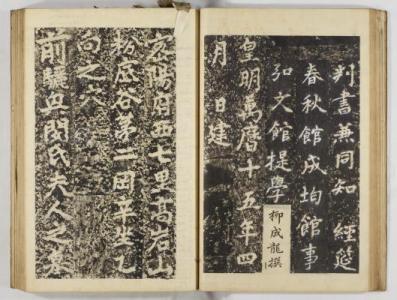 判書兼同知 經筵
春秋館成均館事
弘文館提學
柳成龍撰
皇明萬曆十五年四
月 日建
陽府西七里高岩山
板底谷第一岡辛坐乙
向之穴
前驪 閔氏夫人之墓